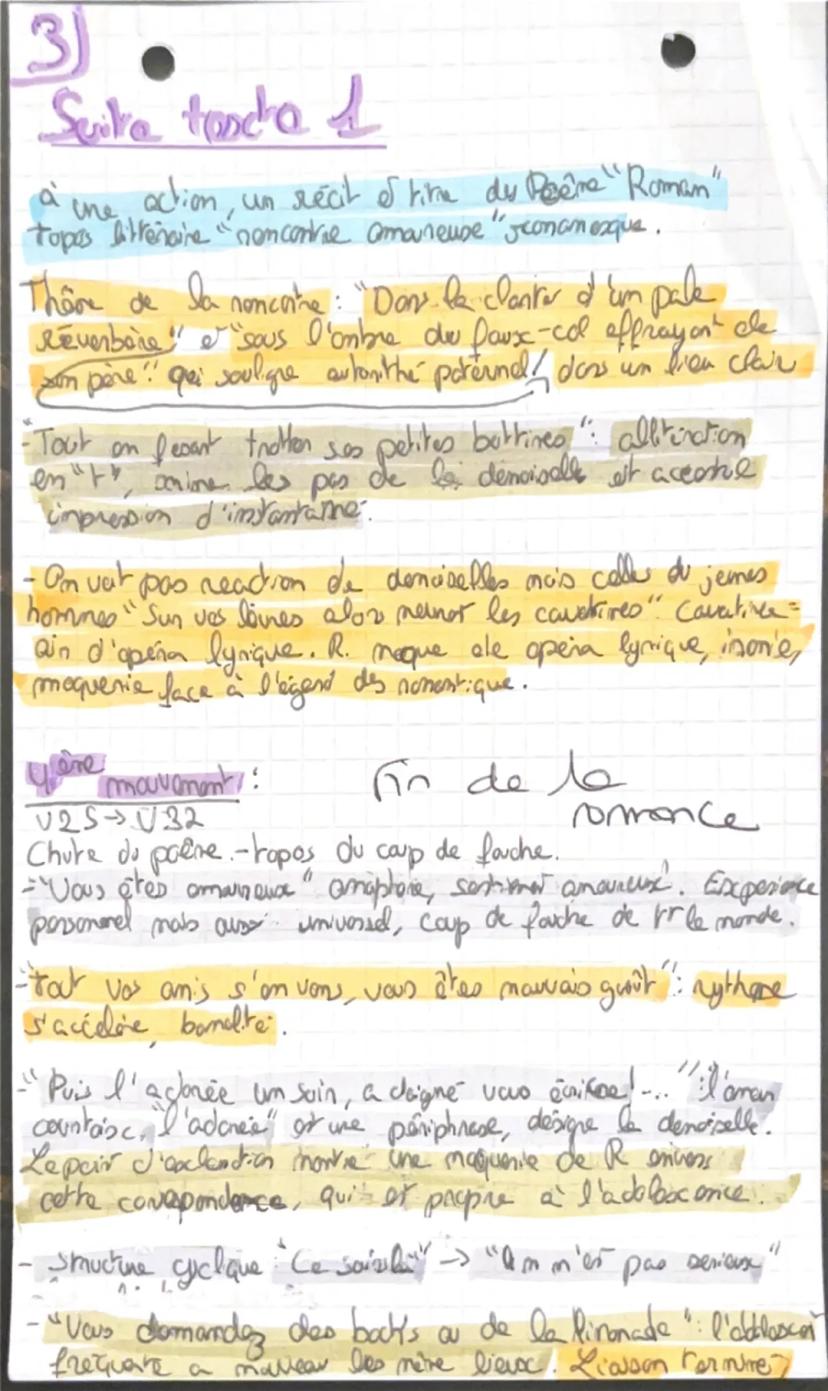 3)
Suite texte 1
à une action, un récit et titre du Poême "Roman"
topos littéraire "rencontre amoureuse" romanesque.
Thême de la rencontre : "Dans la clarté d'un pale
réverbère" et "sous l'ombre du faux-col effrayant de
son père" qui souligne autorithé paternel / dans un lieu clair
- "Tout en fesant trotter ses petites bottines" : allitération
en "t", anime les pas de la demoiselle et accentue
impression d'instantané.
- On voit pas reaction de demoiselles mais celles du jeunes
hommes "Sur vos lèvres alors meurent les cavatines" Cavatine =
air d'opéra lyrique. R. moque de opera lyrique, ironie,
moquerie face à l'égard des romantique.
4ème mouvement :
fin de la
romance
V25 → V32
Chute du poême. - topos du coup de foudre.
- "Vous êtes amoureux" anaphore, sentiment amoureux. Experience
personnel mais aussi universel, coup de foudre de tt le monde.
- "Tout vos amis s'en vons, vous êtes mauvais goût" : rythme
s'accélère, banalité.
- "Puis l'adorée un soir, a daigné vous écrire !..." : l'amour
courtois, "l'adorée" est une périphrase, désigne la demoiselle.
Le point d'exclamation montre une moquerie de R envers
cette correpondance, qui est propre à l'adolescence.
- structure cyclique "Ce soir là" → "On n'est pas serieux"
- "Vous demandez des bocks ou de la limonade" : l'adolescent
fréquente a nouveau les même lieux. Liaison terminé